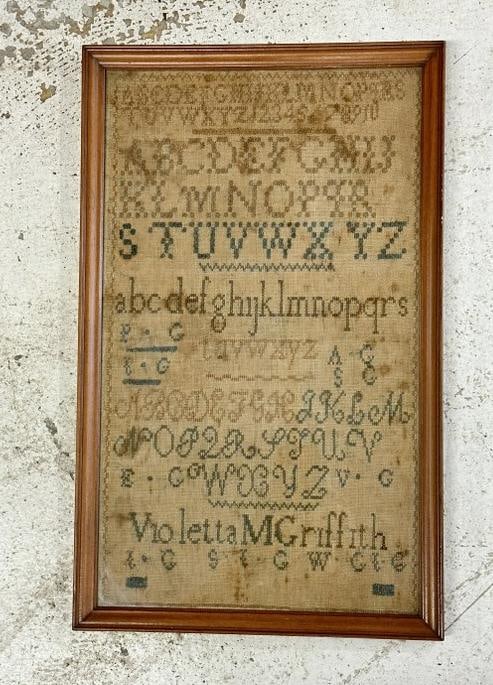 ABCDEFGHIJKLMNOPQRS
TUVWXYZ12345678910
ABCDEFGHIJ
KLMNOPQR
STUVWXYZ
abcdefghijklmnopqrs
tuvwxyz
A · G
S G
ABCDEFGHIJKLM
NOPQRSTUV
E · G WXYZ V · G
Violetta M Griffith